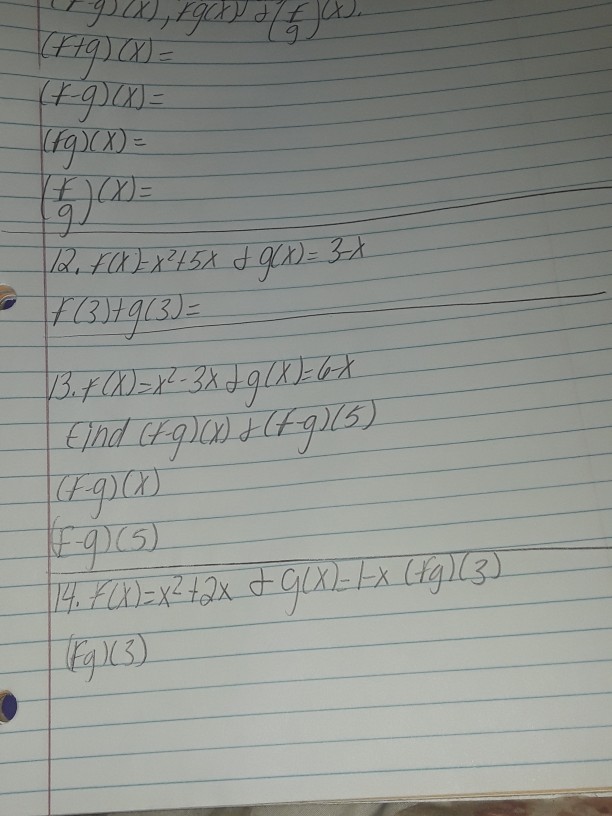 (f-g)(x), fg(x) & (f/g)(x).
(f+g)(x)=
(f-g)(x)=
(fg)(x)=
(f/g)(x)=
12. f(x)=x²+5x & g(x)=3-x
f(3)+g(3)=
13. f(x)=x²-3x & g(x)=6-x
find (f-g)(x) & (f-g)(5)
(f-g)(x)
(f-g)(5)
14. f(x)=x²+2x & g(x)=1-x (fg)(3)
(fg)(3)